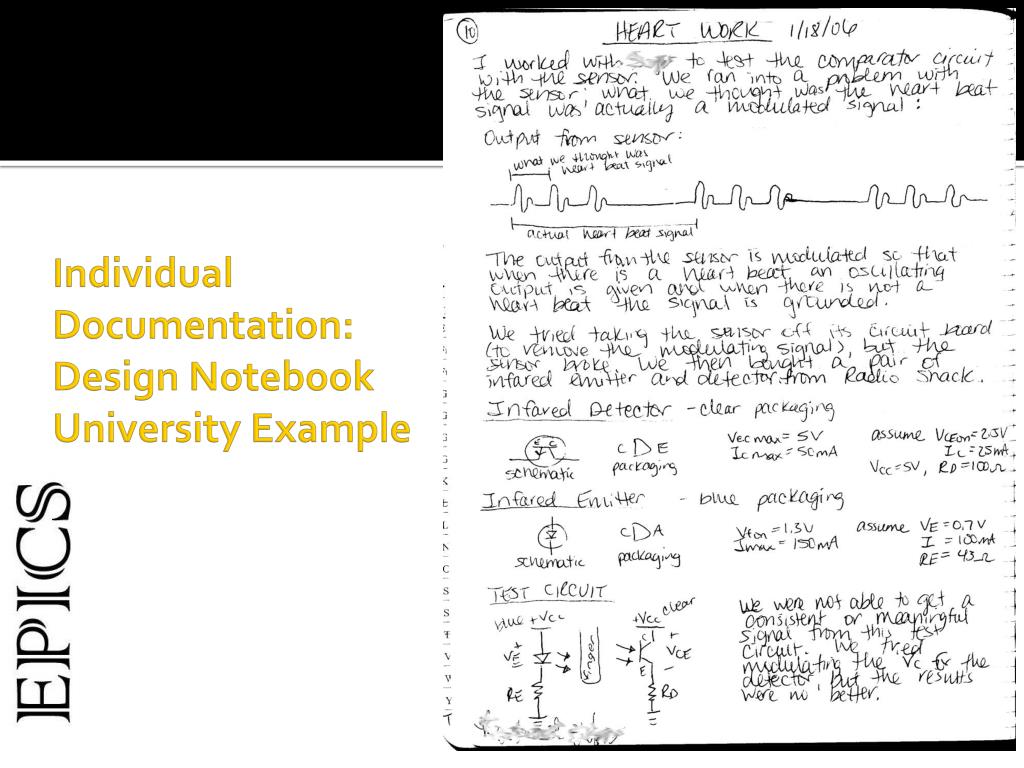 Individual
Documentation:
Design Notebook
University Example
EPICS
10
HEART WORK 1/18/06
I worked with to test the comparator circuit
with the sensor. We ran into a problem with
the sensor: what we thought was the heart beat
signal was actually a modulated signal:
Output from sensor:
what we thought was
heart beat signal
actual heart beat signal
The output from the sensor is modulated so that
when there is a heart beat, an oscillating
output is given and when there is not a
heart beat the signal is grounded.
We tried taking the sensor off its circuit board
(to remove the modulating signal), but the
sensor broke. We then bought a pair of
infared emitter and detector from Radio Shack.
Infared Detector - clear packaging
E C
schematic
C D E
packaging
Vec max = 5V
Ic max = 50mA
assume VCEon = 2.5V
Ic = 25mA
Vcc = 5V, RD = 100Ω
Infared Emitter - blue packaging
schematic
C D A
packaging
Vfon = 1.3V
Imax = 150mA
assume VE = 0.7V
I = 100mA
RE = 43Ω
TEST CIRCUIT
blue +Vcc
+
VE
-
RE
finger
+Vcc clear
C
E
+
VCE
-
RD
We were not able to get a
consistent or meaningful
signal from this test
circuit. We tried
modulating the Vc for the
detector, but the results
were no better.